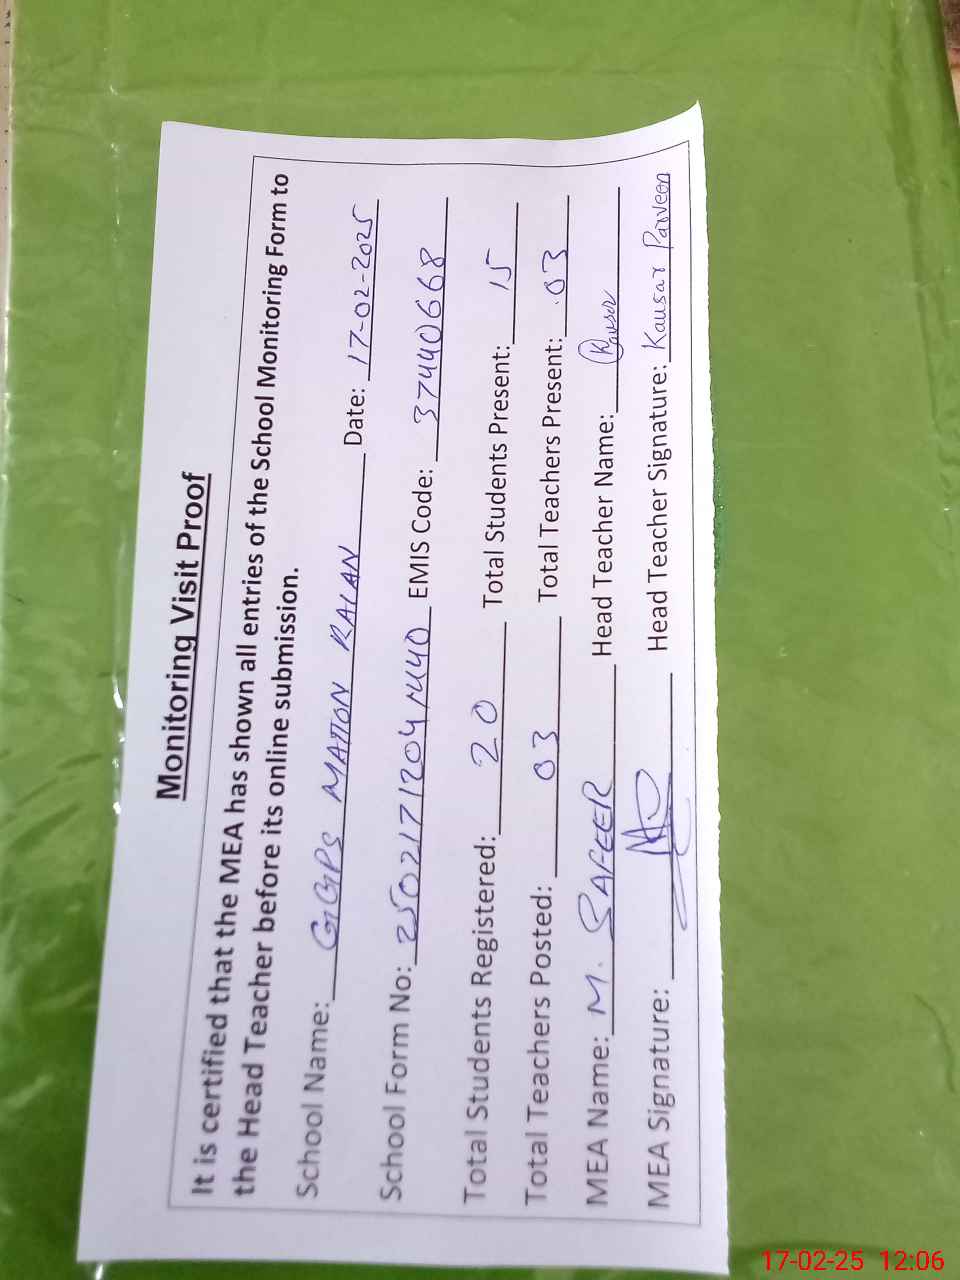 Monitoring Visit Proof
It is certified that the MEA has shown all entries of the School Monitoring Form to
the Head Teacher before its online submission.
School Name: GGPS MATTON RALAN Date: 17-02-2025
School Form No: EMIS Code: 37440668
Total Students Registered: 20 Total Students Present: 15
Total Teachers Posted: 03 Total Teachers Present: 03
MEA Name: M. SAFEER Head Teacher Name: Kausar
MEA Signature: Head Teacher Signature: Kausar Parveen
17-02-25 12:06